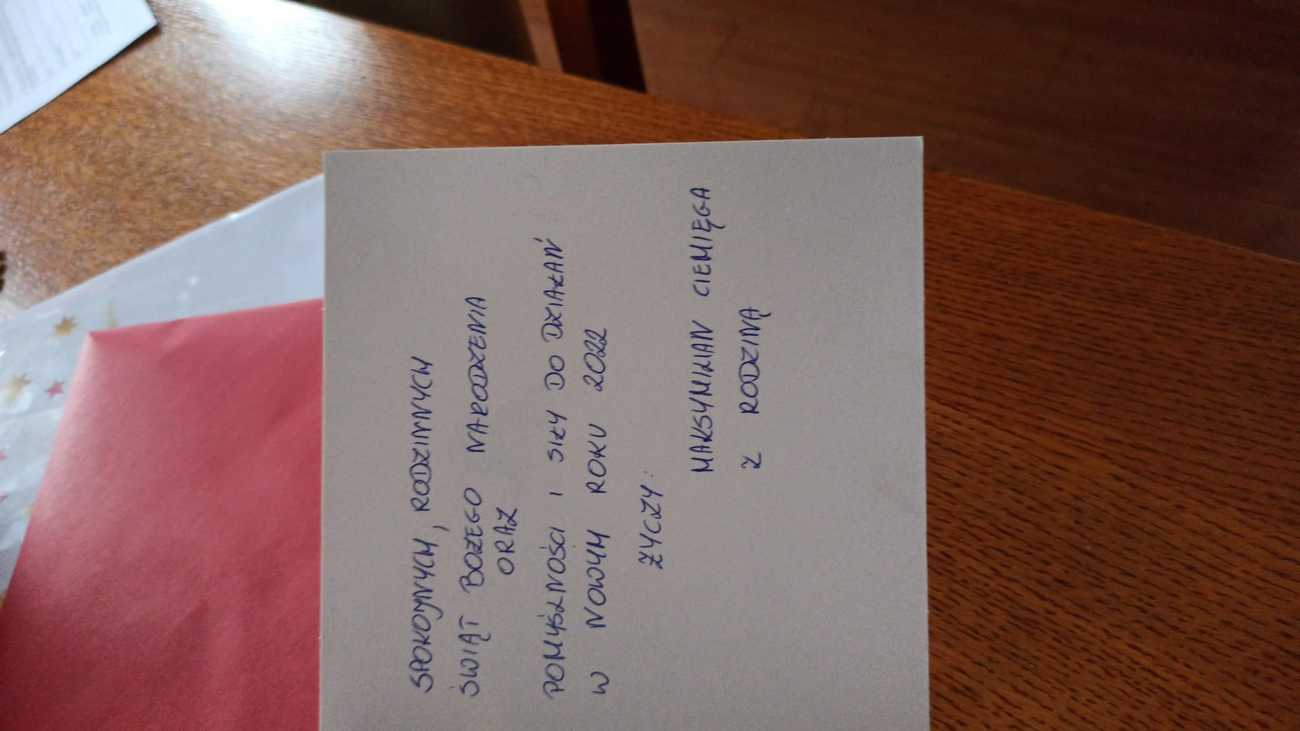 SPOKOJNYCH, RODZINNYCH
ŚWIĄT BOŻEGO NARODZENIA
ORAZ
POMYŚLNOŚCI I SIŁY DO DZIAŁAŃ
W NOWYM ROKU 2022
ŻYCZY:
MAKSYMILIAN CIEMIĘGA
Z RODZINĄ